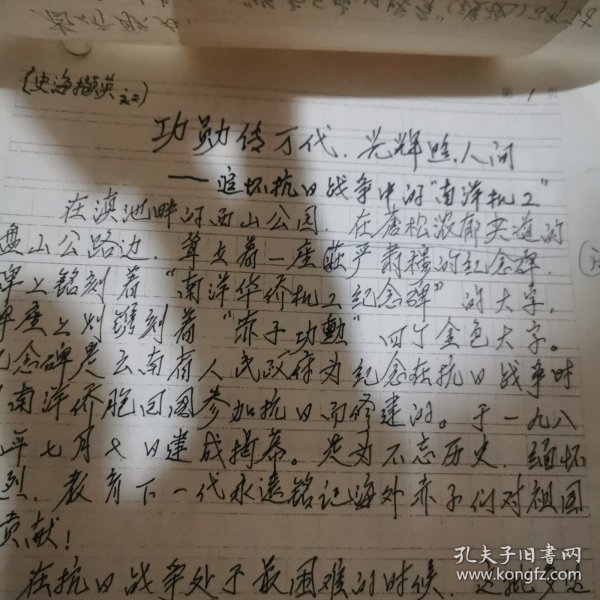 (史海撷英之三)
第1页
功勋传万代、光辉照人间
——追怀抗日战争中的"南洋机工"
在滇池畔的西山公园，在苍松浓郁夹道的
盘山公路边，耸立着一座庄严肃穆的纪念碑，
碑上铭刻着"南洋华侨机工纪念碑"的大字，
碑座上则镌刻着"赤子功勳"四个金色大字。
纪念碑是云南省人民政府为纪念在抗日战争时
南洋侨胞回国参加抗日而修建的。于一九八
年七月七日建成揭幕。是为不忘历史，缅怀
烈，教育下一代永远铭记海外赤子们对祖国
贡献！
在抗日战争处于最困难的时候，
孔夫子旧书网
www.kongfz.com